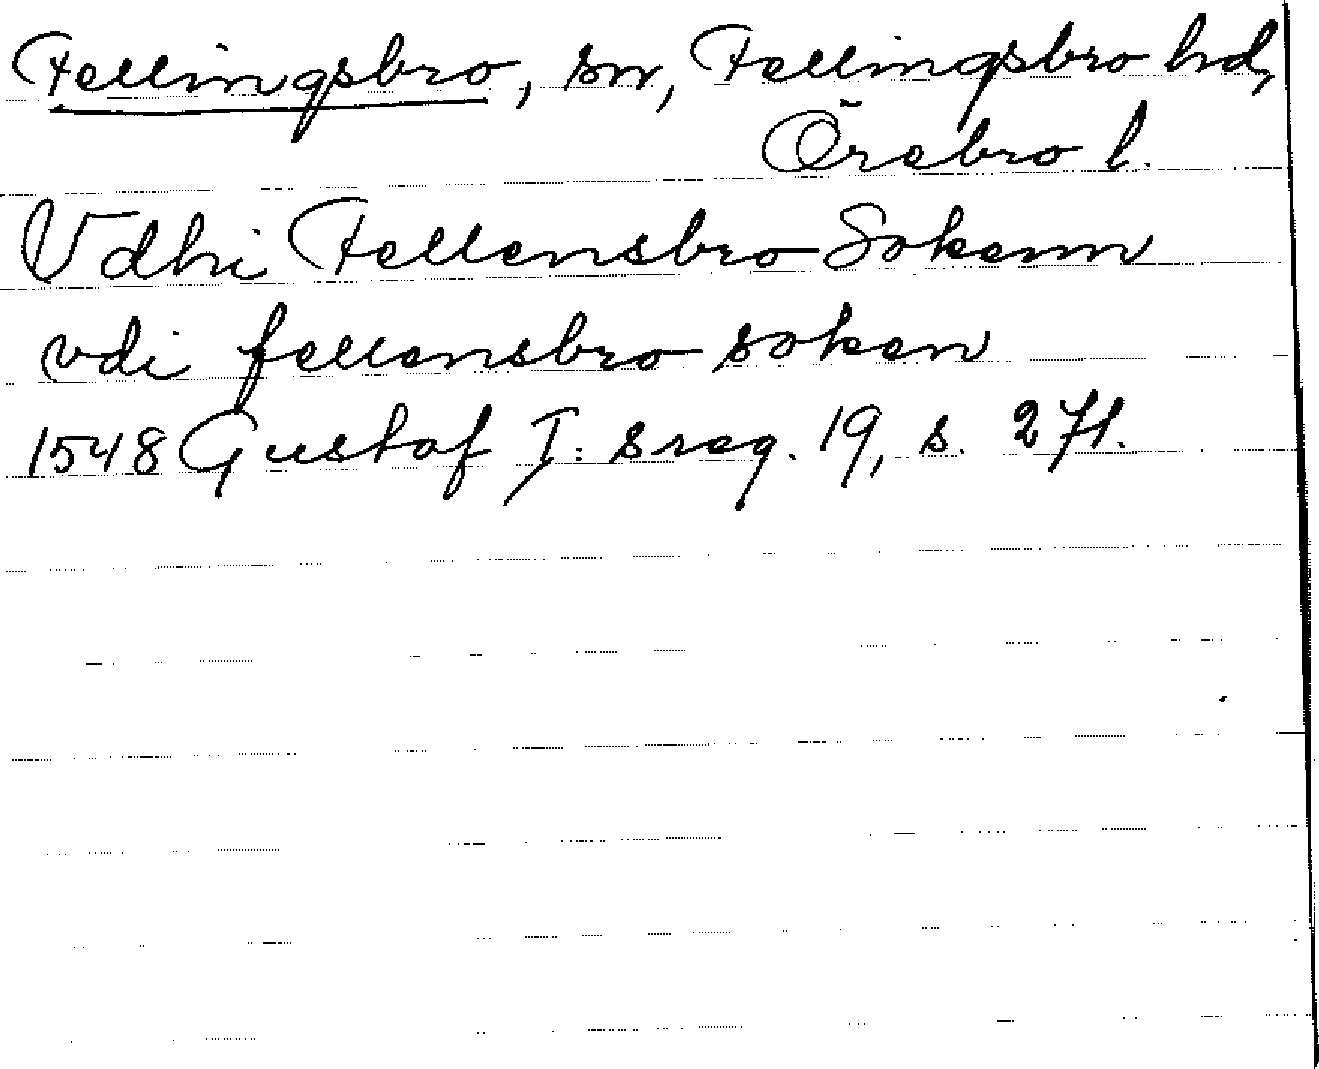 Fellingsbro, sn, Fellingsbro hd,
Örebro l.
Vdhi Fellensbro Sokenn
vdi fellensbro soken
1548 Gustaf I: s reg. 19, s. 271.